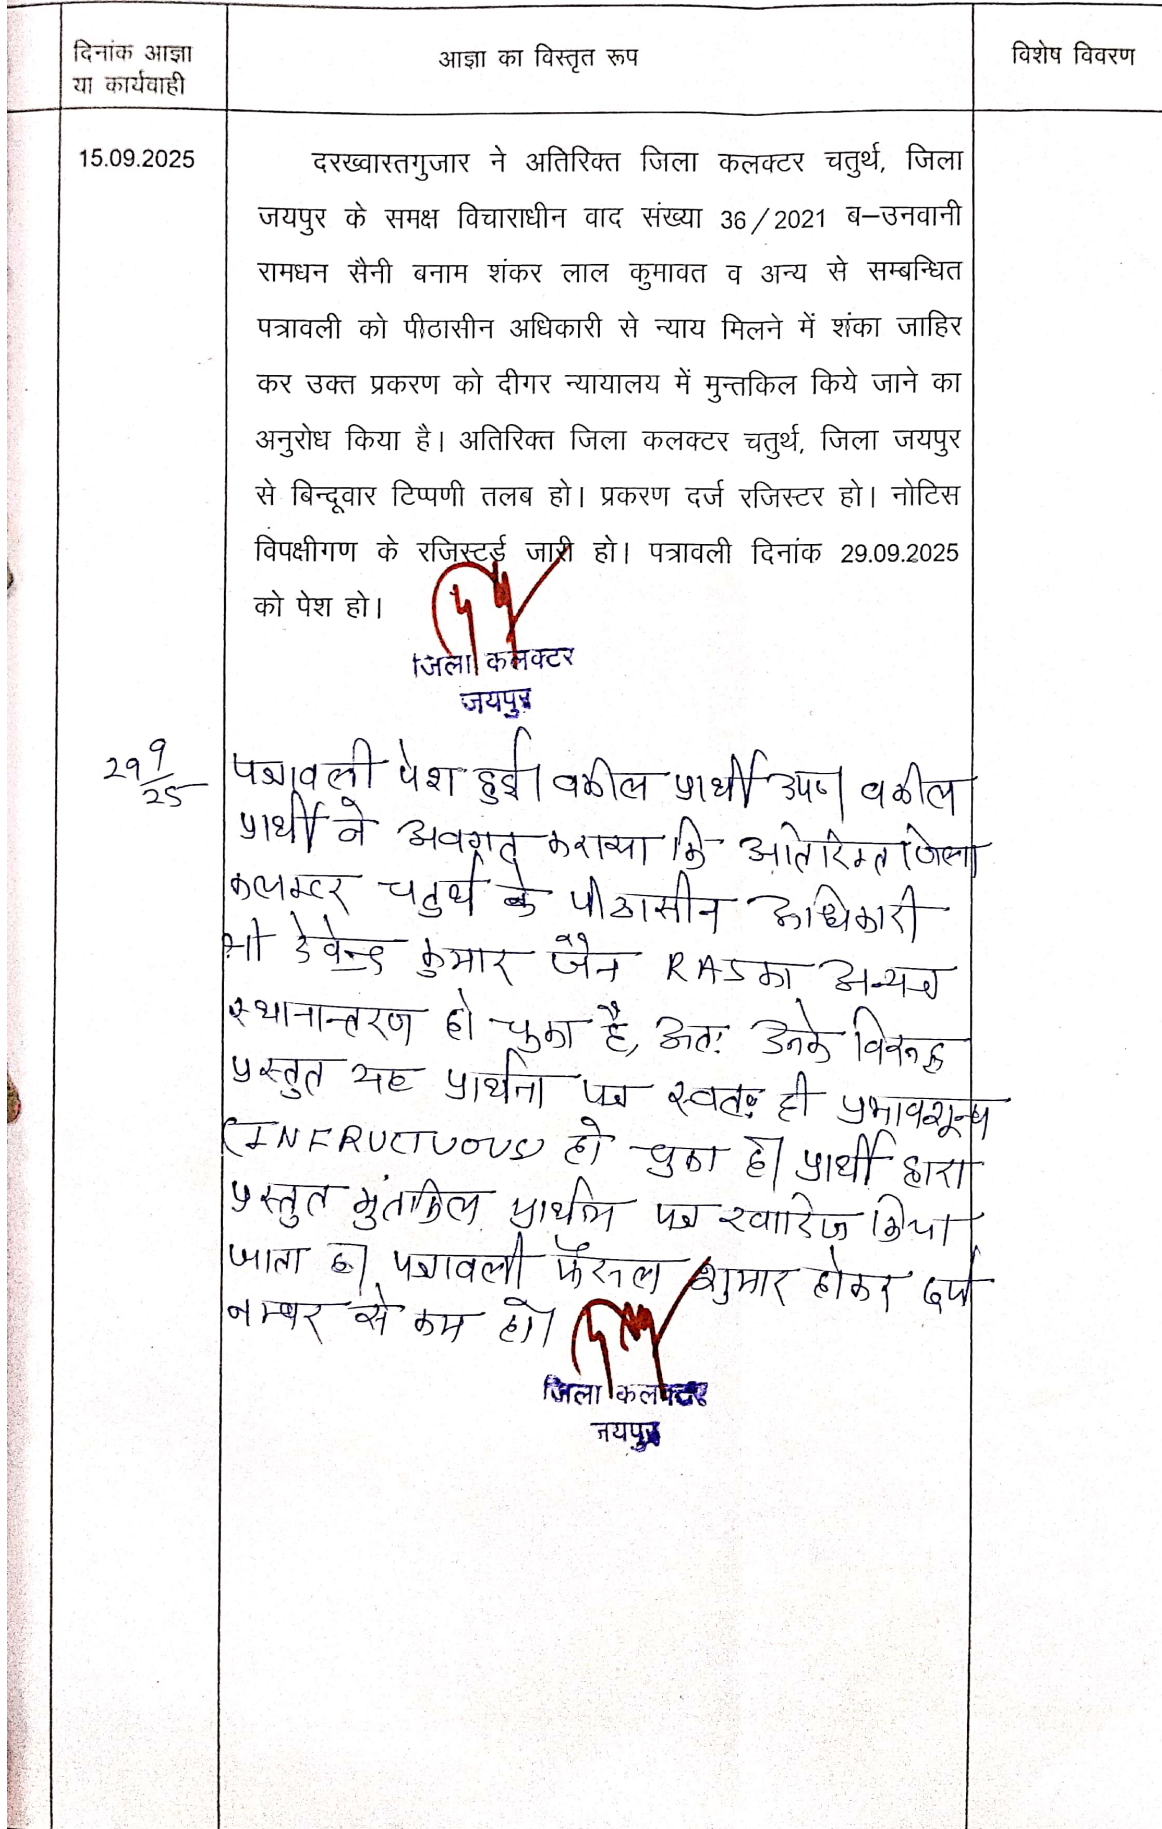 दिनांक आज्ञा
या कार्यवाही
आज्ञा का विस्तृत रूप
विशेष विवरण
15.09.2025
दरख्वास्तगुजार ने अतिरिक्त जिला कलक्टर चतुर्थ, जिला
जयपुर के समक्ष विचाराधीन वाद संख्या 36/2021 ब–उनवानी
रामधन सैनी बनाम शंकर लाल कुमावत व अन्य से सम्बन्धित
पत्रावली को पीठासीन अधिकारी से न्याय मिलने में शंका जाहिर
कर उक्त प्रकरण को दीगर न्यायालय में मुन्तकिल किये जाने का
अनुरोध किया है। अतिरिक्त जिला कलक्टर चतुर्थ, जिला जयपुर
से बिन्दूवार टिप्पणी तलब हो। प्रकरण दर्ज रजिस्टर हो। नोटिस
विपक्षीगण के रजिस्टर्ड जारी हो। पत्रावली दिनांक 29.09.2025
को पेश हो।
जिला कलक्टर
जयपुर
29 9/25
पत्रावली पेश हुई। वकील प्रार्थी उप०। वकील
प्रार्थी ने अवगत कराया कि अतिरिक्त जिला
कलक्टर चतुर्थ के पीठासीन अधिकारी
श्री देवेन्द्र कुमार जैन RAS का अन्यत्र
स्थानान्तरण हो चुका है, अतः उनके विरूद्ध
प्रस्तुत यह प्रार्थना पत्र स्वतः ही प्रभावशून्य
(INFRUCTUOUS) हो चुका है। प्रार्थी द्वारा
प्रस्तुत मुंतकिल प्रार्थना पत्र खारिज किया
जाता है। पत्रावली फैसल शुमार होकर दर्ज
नम्बर से कम हो।
जिला कलक्टर
जयपुर